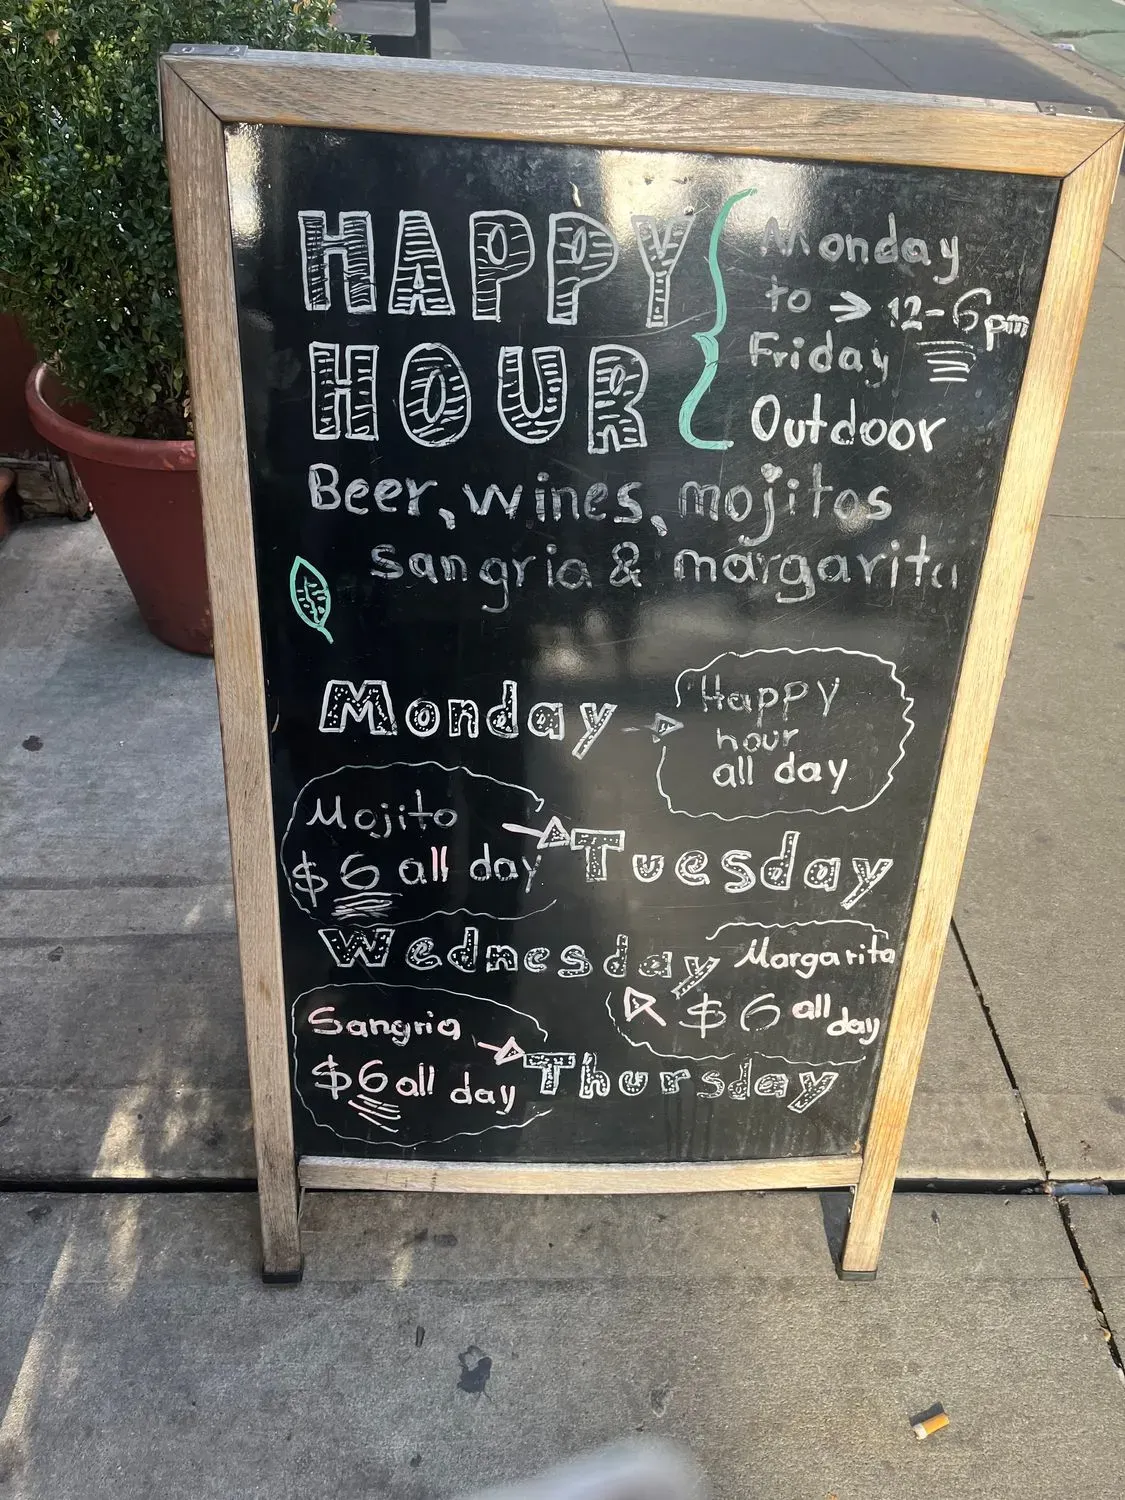 HAPPY
HOUR
Monday
to → 12-6pm
Friday
Outdoor
Beer, wines, mojitos
sangria & margarita
Monday
Happy
hour
all day
Mojito
$6 all day
Tuesday
Wednesday
Margarita
$6 all day
Sangria
$6 all day
Thursday